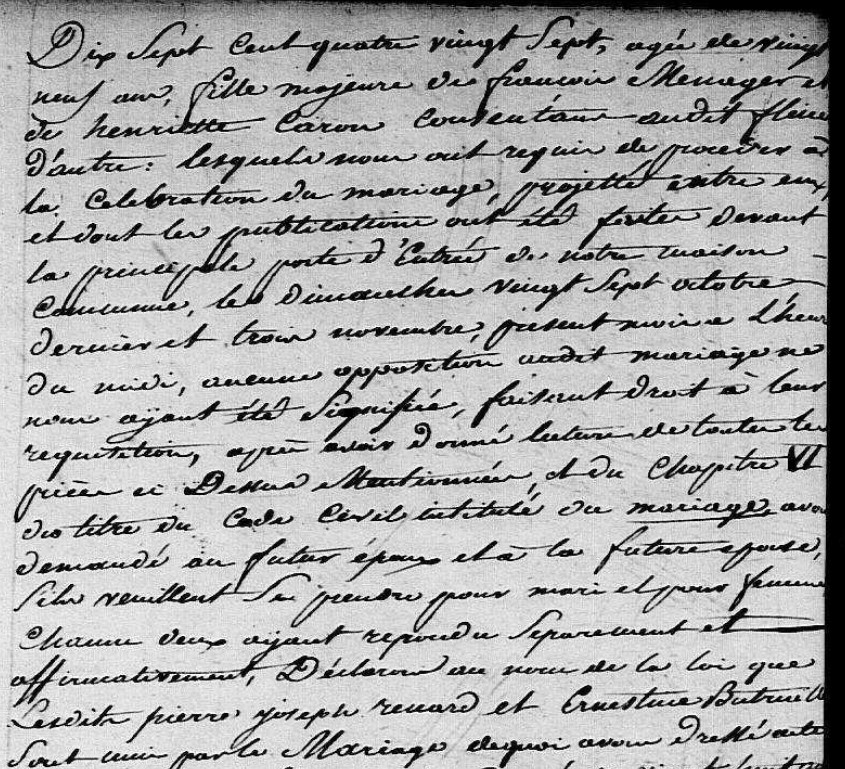 Dix Sept Cent quatre vingt Sept, agée de vingt
neuf ans, fille majeure de francois Menager et
de henriette Caron Consentans audit
d'autre: lesquels nous ont requis de proceder à
la Celebration du mariage, projetté entre eux,
et dont les publications ont été faites devant
la principale porte d'Entrée de notre maison
Commune, les dimanches vingt Sept octobre
dernier et trois novembre, présent mois a L'heure
du midi, aucune opposition audit mariage ne
nous ayant été Signifiée, faisant droit à leur
requisition, après avoir donné lecture de toutes les
pièces ci Dessus Mentionnées, et du Chapitre VI
du titre du Code Civil intitulé du mariage, avons
demandé au futur époux et à la future epouse,
S'ils veuillent Se prendre pour mari et pour femme
Chacun deux ayant repondu Separement et
affirmativement, Déclarons au nom de la loi que
Lesdits pierre joseph renard et Ernestine
Sont unis par le Mariage dequoi avons dressé acte